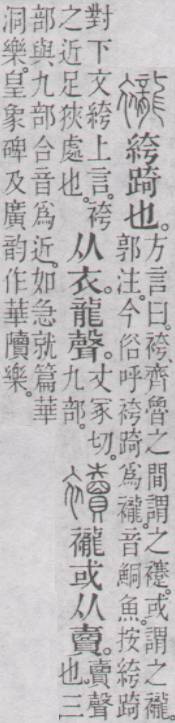 襱
絝踦也。
方言曰。袴、齊魯之間謂之䙭。或謂之襱。
郭注。今俗呼袴踦爲襱。音鮦魚。按絝踦
對下文絝上言。袴
之近足狹處也。
从衣。龍聲。
丈冢切。
九部。
襩
襱或从賣。
賣聲
也。三
部與九部合音爲近。如急就篇華
洞樂。皇象碑及廣韵作華𨽍樂。